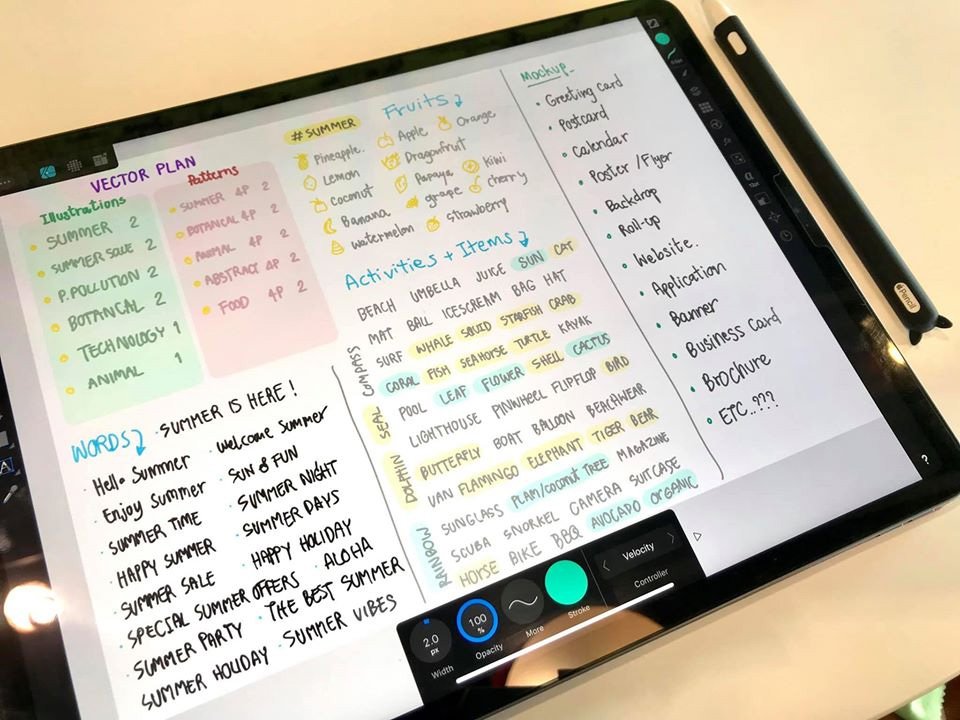 VECTOR PLAN
Illustrations
SUMMER 2
SUMMER SALE 2
P.POLLUTION 2
BOTANICAL 2
TECHNOLOGY 1
ANIMAL 1
Patterns
SUMMER 4P 2
BOTANICAL 4P 2
ANIMAL 4P 2
ABSTRACT 4P 2
FOOD 4P 2
# SUMMER
Fruits
Pineapple
Apple
Orange
Lemon
Dragonfruit
Coconut
Papaya
Kiwi
Banana
grape
cherry
watermelon
strawberry
Activities + Items
BEACH UMBELLA JUICE SUN CAT
MAT BALL ICESCREAM BAG HAT
SURF WHALE SQUID STARFISH CRAB
CORAL FISH SEAHORSE TURTLE KAYAK
POOL LEAF FLOWER SHELL CACTUS
LIGHTHOUSE PINWHEEL FLIPFLOP BIRD
BUTTERFLY BOAT BALOON BEACHWEAR
VAN FLAMINGO ELEPHANT TIGER BEAR
SUNGLASS PLAM/COCONUT TREE MAGAZINE
SCUBA SNORKEL CAMERA SUITCASE
HORSE BIKE BBQ AVOCADO ORGANIC
COMPASS
SEAL
DOLPHIN
RAINBOW
Mockup
Greeting card
Postcard
Calendar
Poster / Flyer
Backdrop
Roll-up
Website.
Application
Banner
Business Card
Brochure
ETC..???
WORDS
SUMMER IS HERE !
Hello Summer
Welcome Summer
Enjoy Summer
SUN & FUN
SUMMER TIME
SUMMER NIGHT
HAPPY SUMMER
SUMMER DAYS
SUMMER SALE
HAPPY HOLIDAY
SPECIAL SUMMER OFFERS
ALOHA
SUMMER PARTY
THE BEST SUMMER
SUMMER HOLIDAY
SUMMER VIBES
2.0 px
Width
100 %
Opacity
More
Stroke
Velocity
Controller
?
A
Pencil